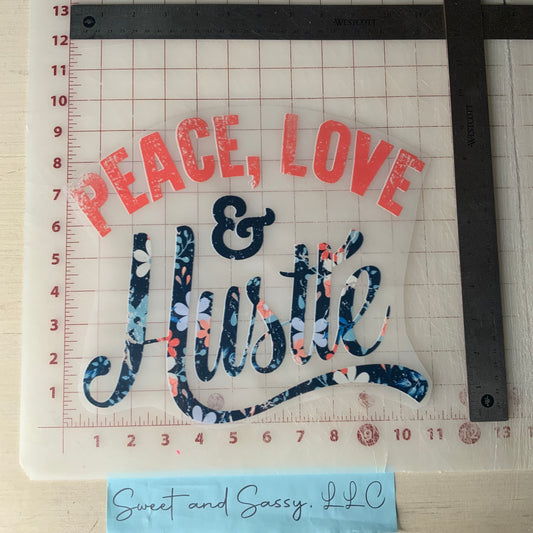 13
12
WESTCOTT
11
10
9
8
7
6
5
4
3
2
1
WESTCOTT
PEACE, LOVE
&
Hustle
1 2 3 4 5 6 7 8 10 11 12 13
Sweet and Sassy, LLC